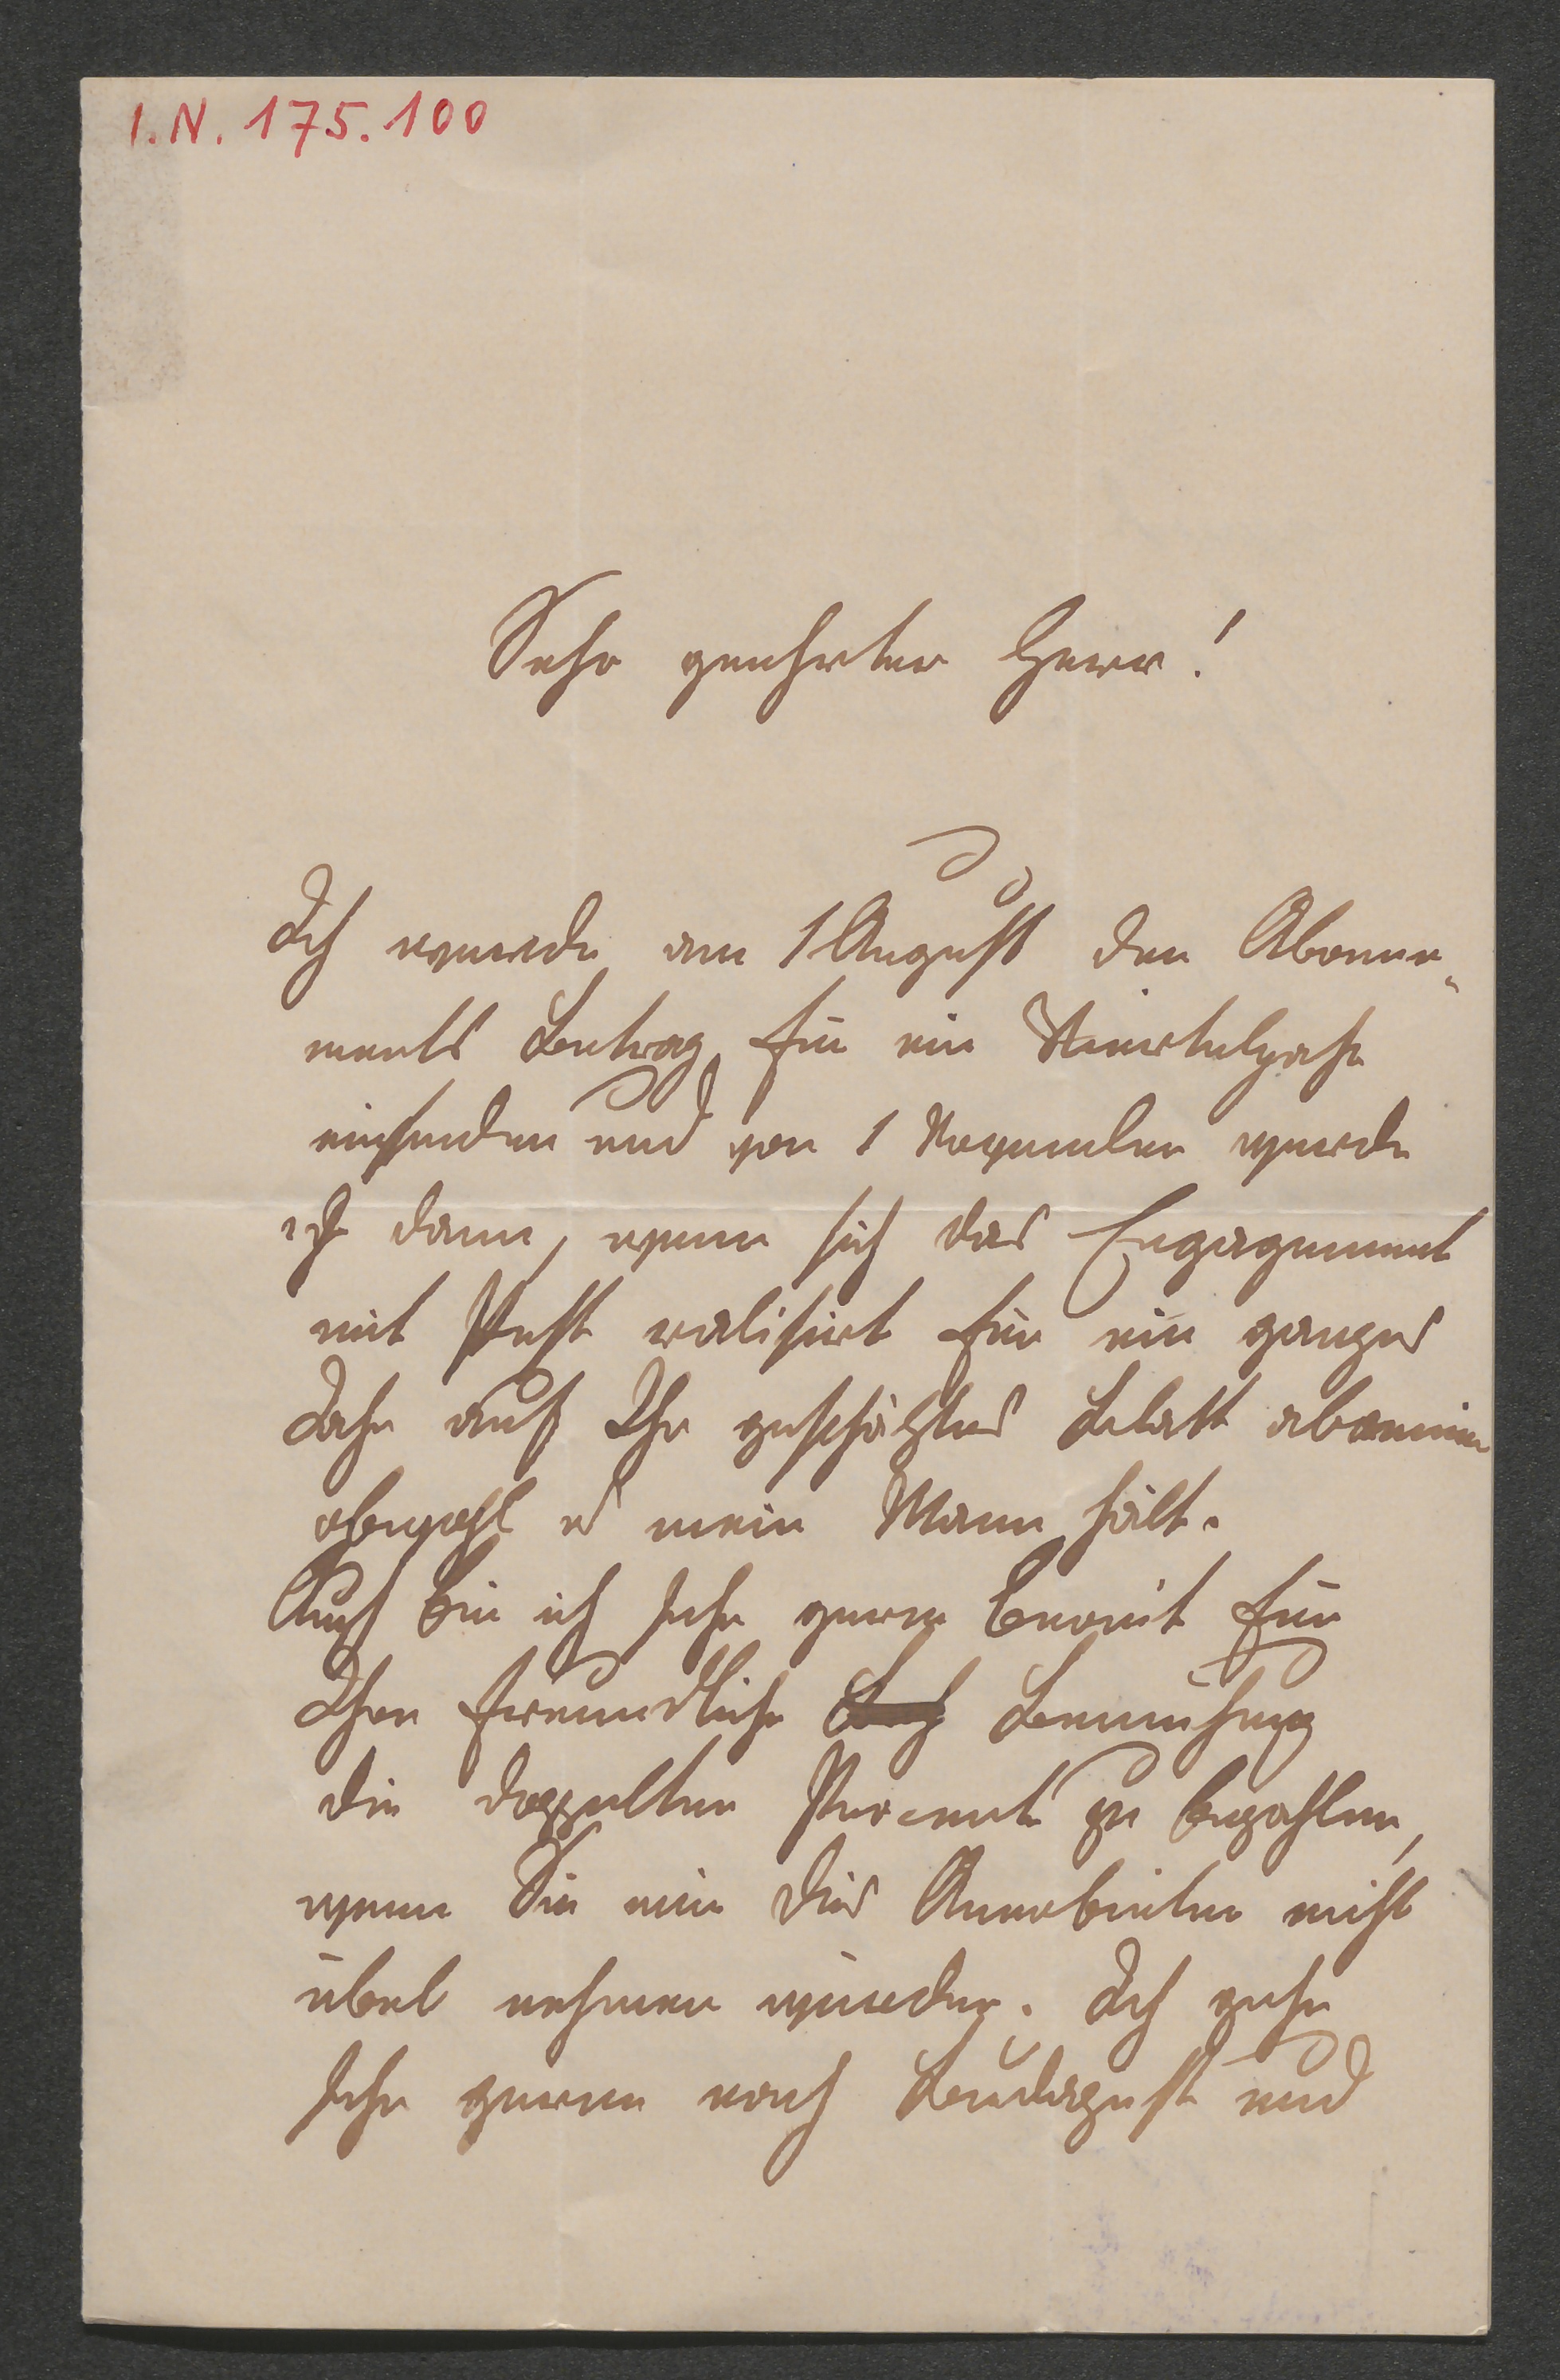 I.N. 175.100
Sehr geehrter Herr!
Ich werde am 1 August den Abonne-
ments Betrag für ein Vierteljahr
einsenden und von 1 November werde
ich dann, wenn sich das Engagement
mit Pest realisirt für ein ganzes
Jahr auf Ihr geschätztes Blatt abonniren
obwohl es mein Mann hält.
Auch bin ich sehr gerne bereit für
Ihre freundliche Bemühung
die doppelten Percente zu bezahlen,
wenn Sie mir dies Anerbieten nicht
übel nehmen würden. Ich gehe
sehr gerne nach Budapest und